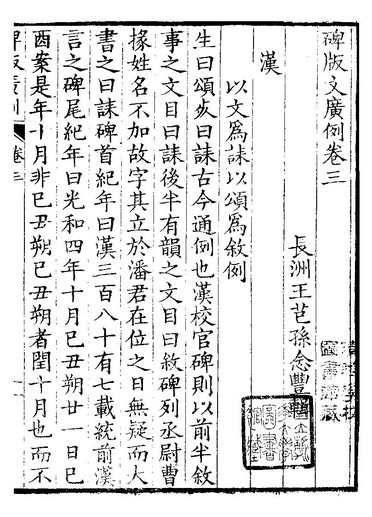 碑版文廣例卷三
長洲王芑孫念豐輯
漢
以文為誄以頌為敘例
生曰頌死曰誄古今通例也漢校官碑則以前半敘
事之文目曰誄後半有韻之文目曰敘碑列丞尉曹
掾姓名不加故字其立於潘君在位之日無疑而大
書之曰誄碑首紀年曰漢三百八十有七載統前漢
言之碑尾紀年曰光和四年十月己丑朔廿一日己
酉案是年十月非己丑朔己丑朔者閏十月也而不
卷三